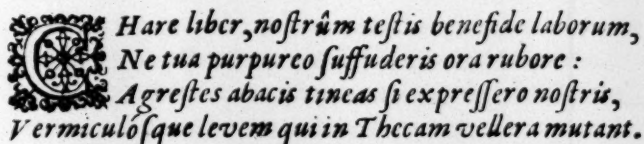 CHare liber, noſtrûm teſtis benefide laborum,
Ne tua purpureo ſuffuderis ora rubore :
Agreſtes abacis tineas ſi expreſſero noſtris,
Vermiculóſque levem qui in Thecam vellera mutant.